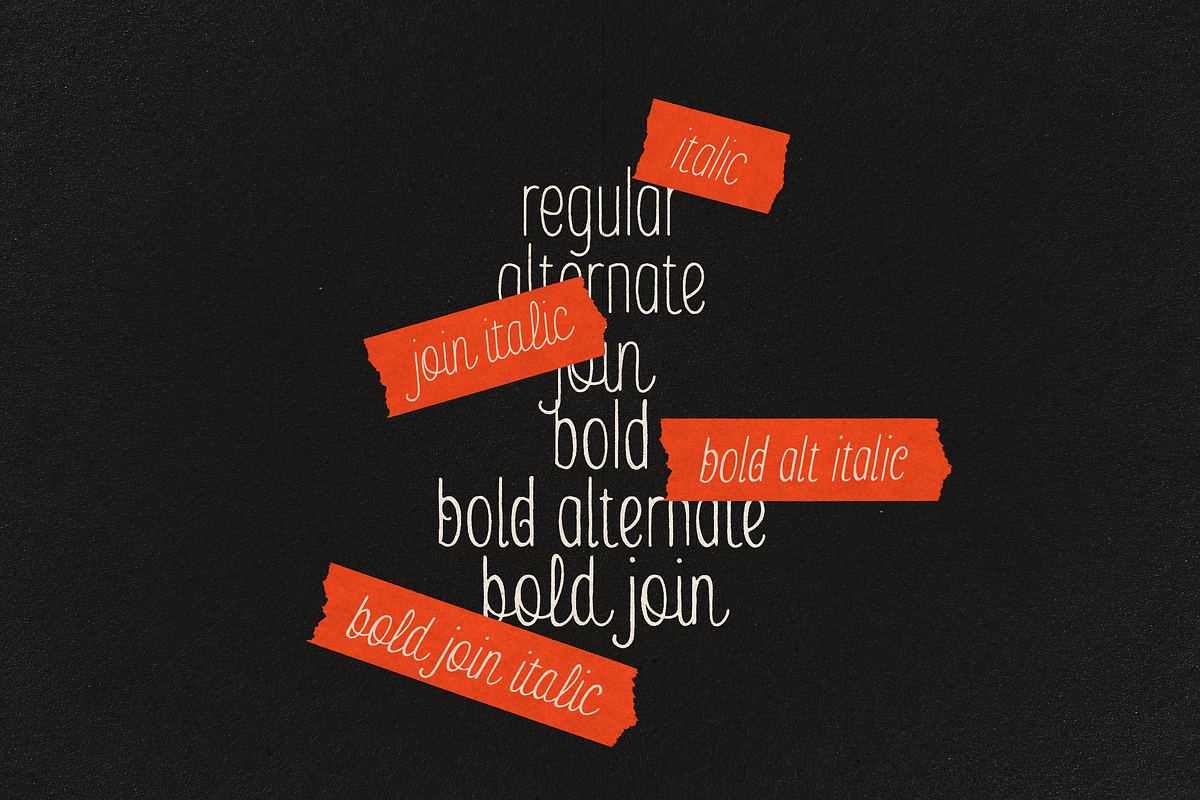 italic
regular
alternate
join italic
join
bold
bold alt italic
bold alternate
bold join
bold join italic